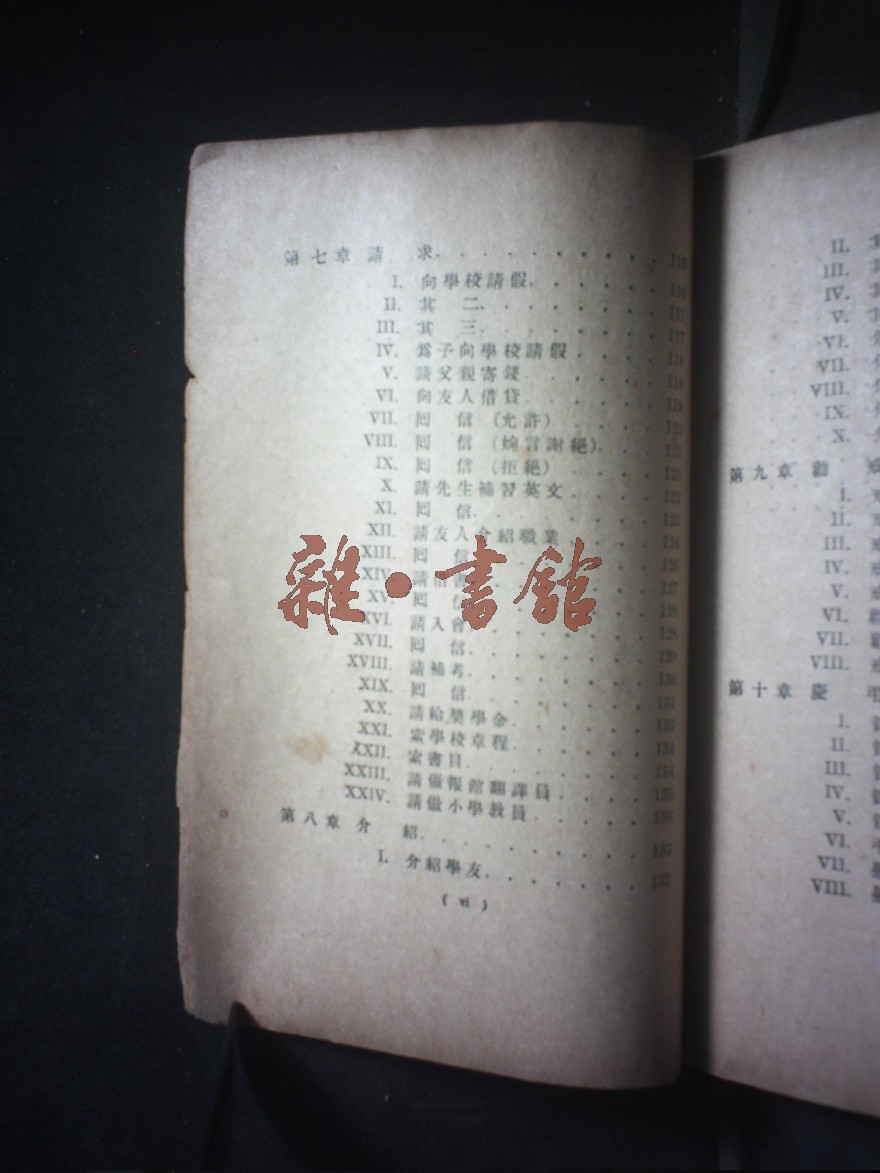 第七章 請 求 . . . . . . . . . . 116
I. 向學校請假 . . . . . . . 116
II. 其 二 . . . . . . . . . 117
III. 其 三 . . . . . . . . . 117
IV. 爲子向學校請假 . . . . . 118
V. 請父親寄錢 . . . . . . . 118
VI. 向友人借貸 . . . . . . . 119
VII. 囘 信 (允許) . . . . . 120
VIII. 囘 信 (婉言謝絕) . . . 121
IX. 囘 信 (拒絕) . . . . .
X. 請先生補習英文 . . . . . 122
XI. 囘 信 . . . . . . . .
XII. 請友人介紹職業 . . . . 124
XIII. 囘 信 . . . . . . . 126
XIV. 請 . . . . . . . 127
XV. 囘 信 . . . . . . . 128
XVI. 請入會 . . . . . . . 128
XVII. 囘 信 . . . . . . . 129
XVIII. 請補考 . . . . . . . 130
XIX. 囘 信 . . . . . . . 131
XX. 請給奬學金 . . . . . . 133
XXI. 索學校章程 . . . . . . 134
XXII. 索書目 . . . . . . . 134
XXIII. 請做報館翻譯員 . . . . 135
XXIV. 請做小學敎員 . . . . . 136
第八章 介 紹 . . . . . . . . . 137
I. 介紹學友 . . . . . . . . 137
( vi )
雜·書館
II. 其
III. 其
IV. 其
V. 其
VI. 介
VII. 介
VIII. 介
IX. 介
X. 介
第九章 勸 戒
I.
II.
III.
IV.
V.
VI.
VII.
VIII.
第十章 慶 弔
I.
II.
III.
IV.
V.
VI.
VII.
VIII.